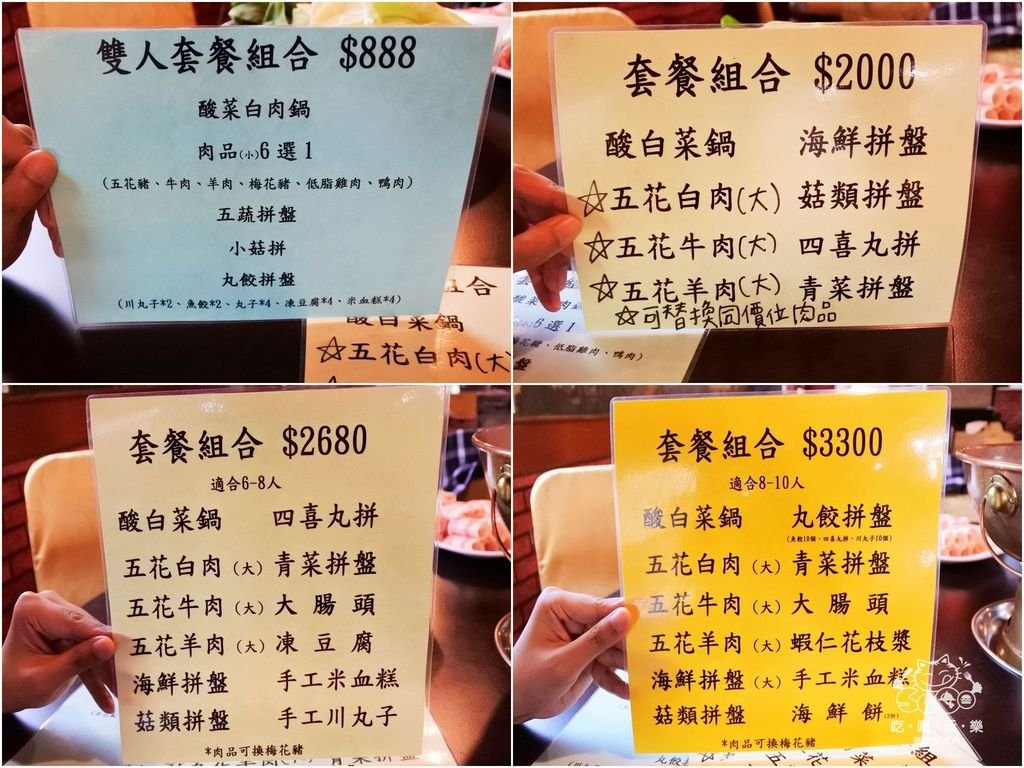 雙人套餐組合 $888
酸菜白肉鍋
肉品(小)6 選 1
(五花豬、牛肉、羊肉、梅花豬、低脂雞肉、鴨肉)
五蔬拼盤
小菇拼
丸餃拼盤
(川丸子*2、魚餃*2、丸子*4、凍豆腐*4、米血糕*4)
組合
酸白菜鍋
☆五花白肉(大
套餐組合 $2000
酸白菜鍋 海鮮拼盤
☆五花白肉(大) 菇類拼盤
☆五花牛肉(大) 四喜丸拼
☆五花羊肉(大) 青菜拼盤
☆可替換同價位肉品
6 選 1
梅花豬、低脂雞肉、鴨肉)
盤
套餐組合 $2680
適合6-8人
酸白菜鍋 四喜丸拼
五花白肉(大) 青菜拼盤
五花牛肉(大) 大腸頭
五花羊肉(大) 凍豆腐
海鮮拼盤 手工米血糕
菇類拼盤 手工川丸子
*肉品可換梅花豬
套餐組合 $3300
適合8-10人
酸白菜鍋 丸餃拼盤
(魚餃10個、四喜丸拼、川丸子10個)
五花白肉(大) 青菜拼盤
五花牛肉(大) 大腸頭
五花羊肉(大) 蝦仁花枝漿
海鮮拼盤(大) 手工米血糕
菇類拼盤 海鮮餅(2份)
*肉品可換梅花豬
吃·喝·玩·樂